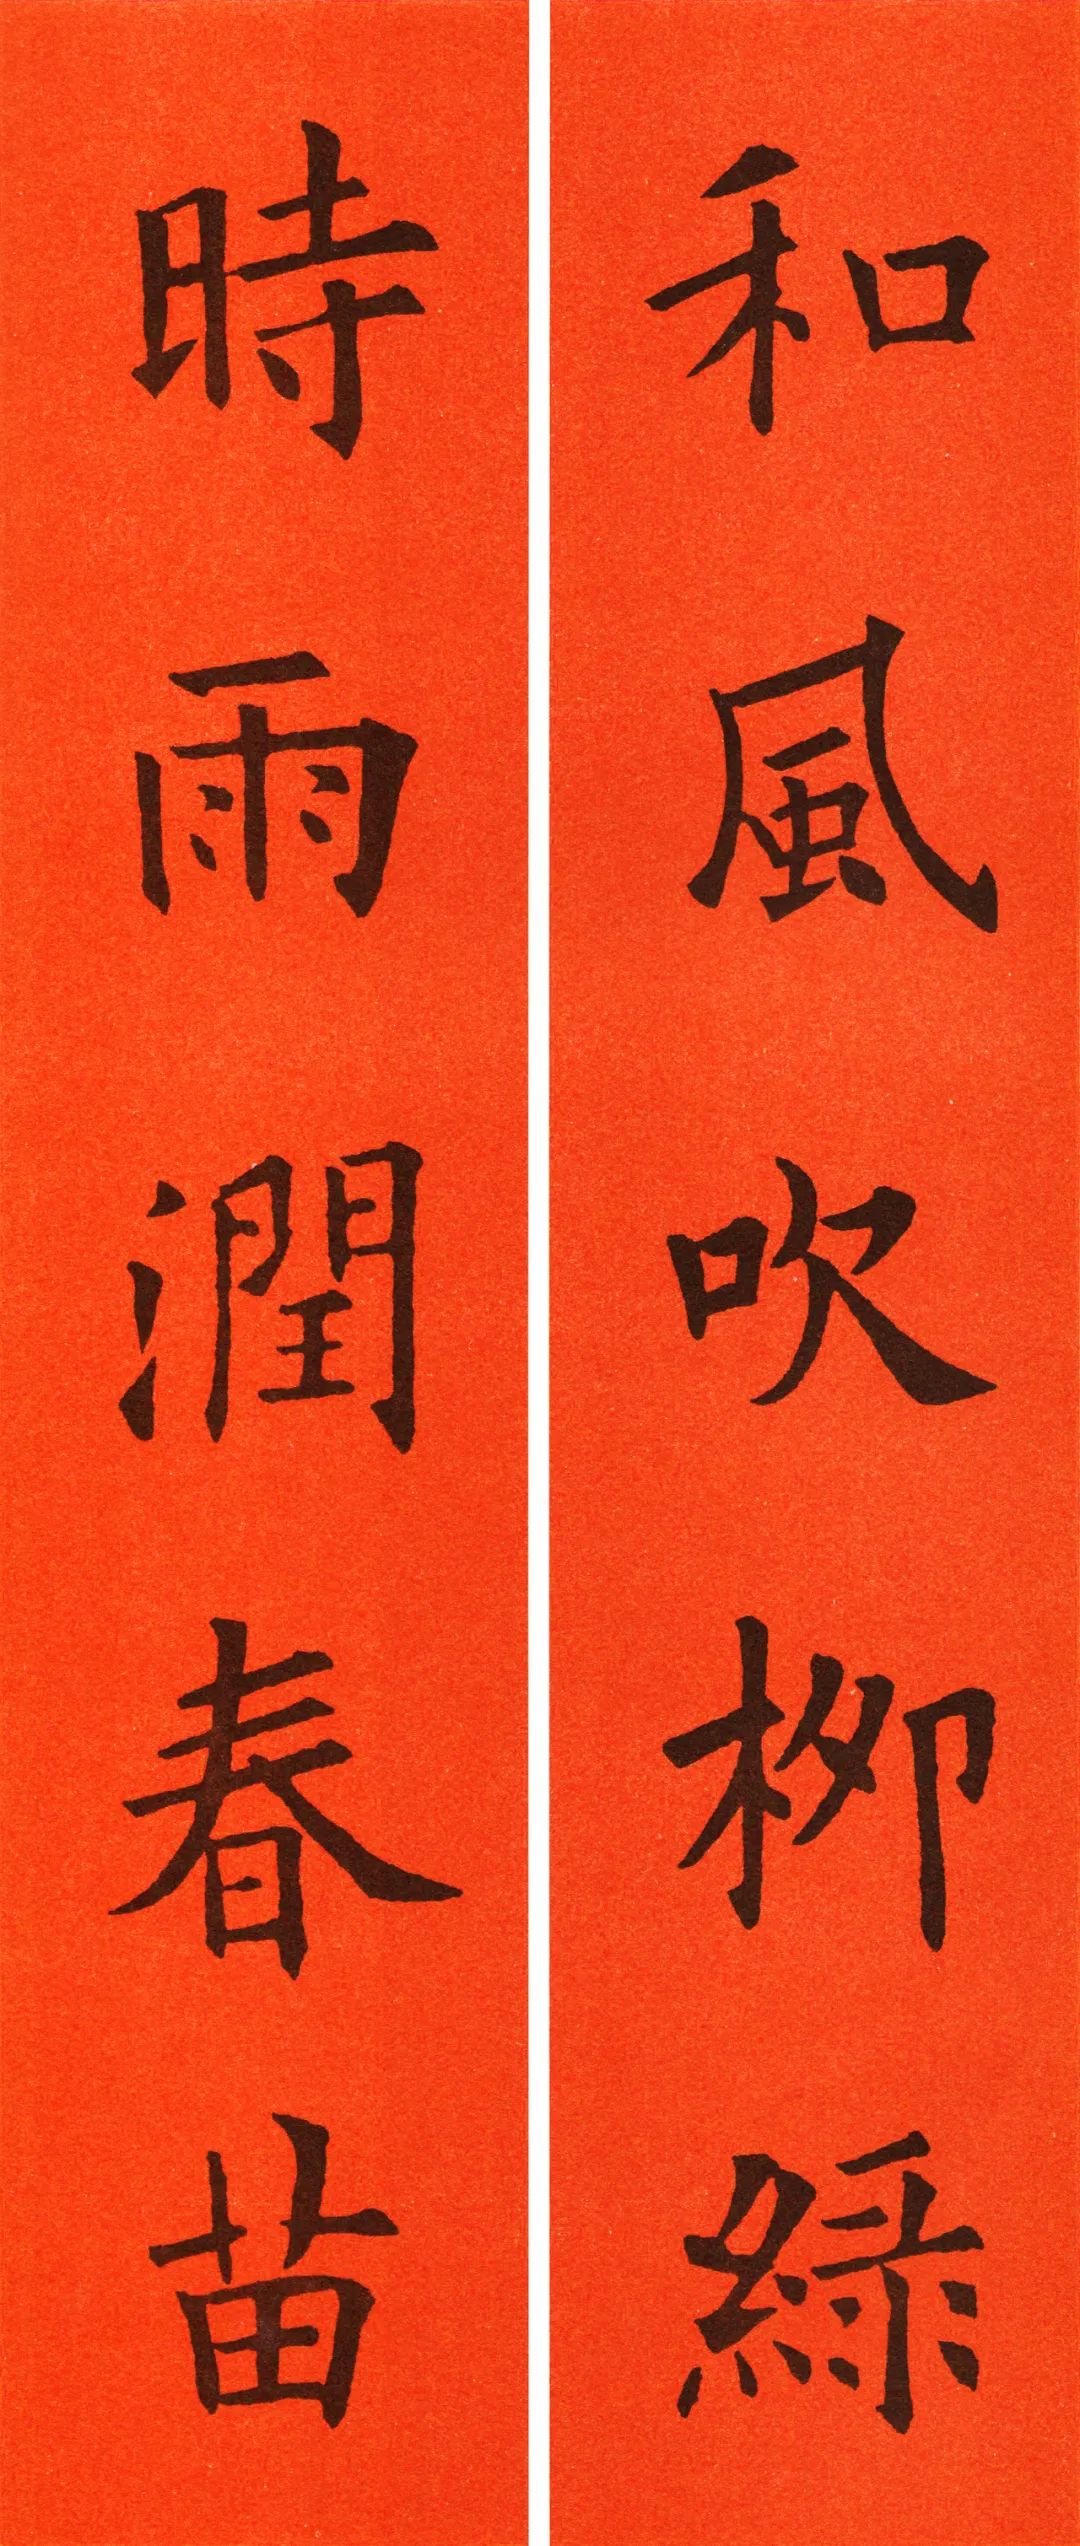 和風吹柳綠
時雨潤春苗